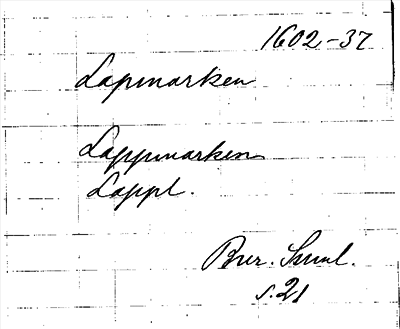 1602-37
Lapmarken
Lappmarken
Lappl.
Bur. Suml.
s. 21